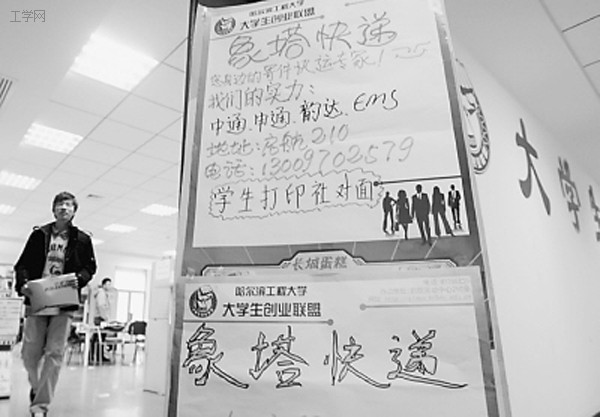 工学网
哈尔滨工程大学
大学生创业联盟
象塔快递
您身边的寄件快运专家!
我们的实力:
中通、申通、韵达、EMS
地址:启航210
电话:13009702579
学生打印社对面
长城蛋糕
哈尔滨工程大学
大学生创业联盟
象塔快递
大学生